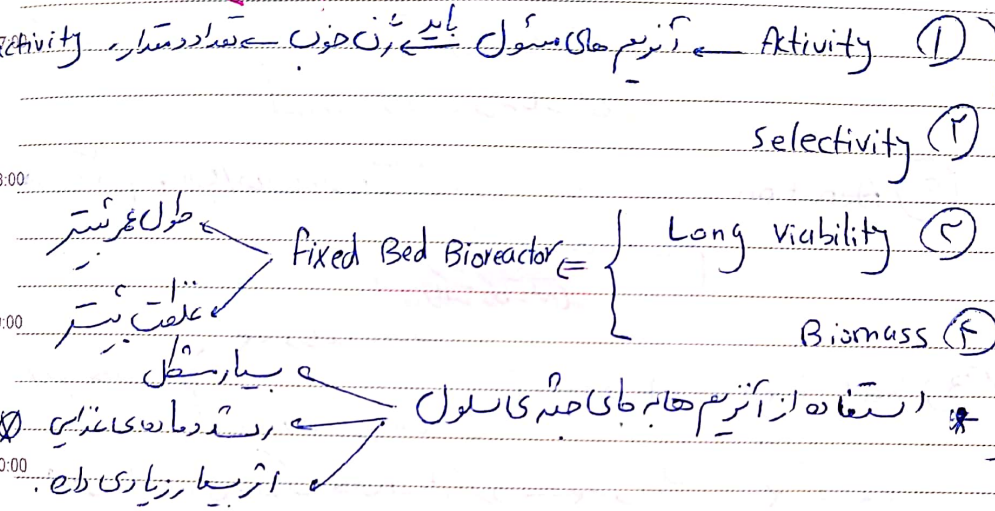 ① Aktivity ← آنزیم های مسئول باید ← ژن خوب ← تعداد و مقدار، activity
② selectivity
8:00
③ Long Viability
Fixed Bed Bioreactor ⇐
طول عمر بیشتر
غلظت بیشتر
:00
④ Biomass
* استفاده از آنزیم ها به جای جثه ی سلول
بسیار مشکل
رشد و ماده ی غذایی
0:00
اثر بسیار زیادی دارد.